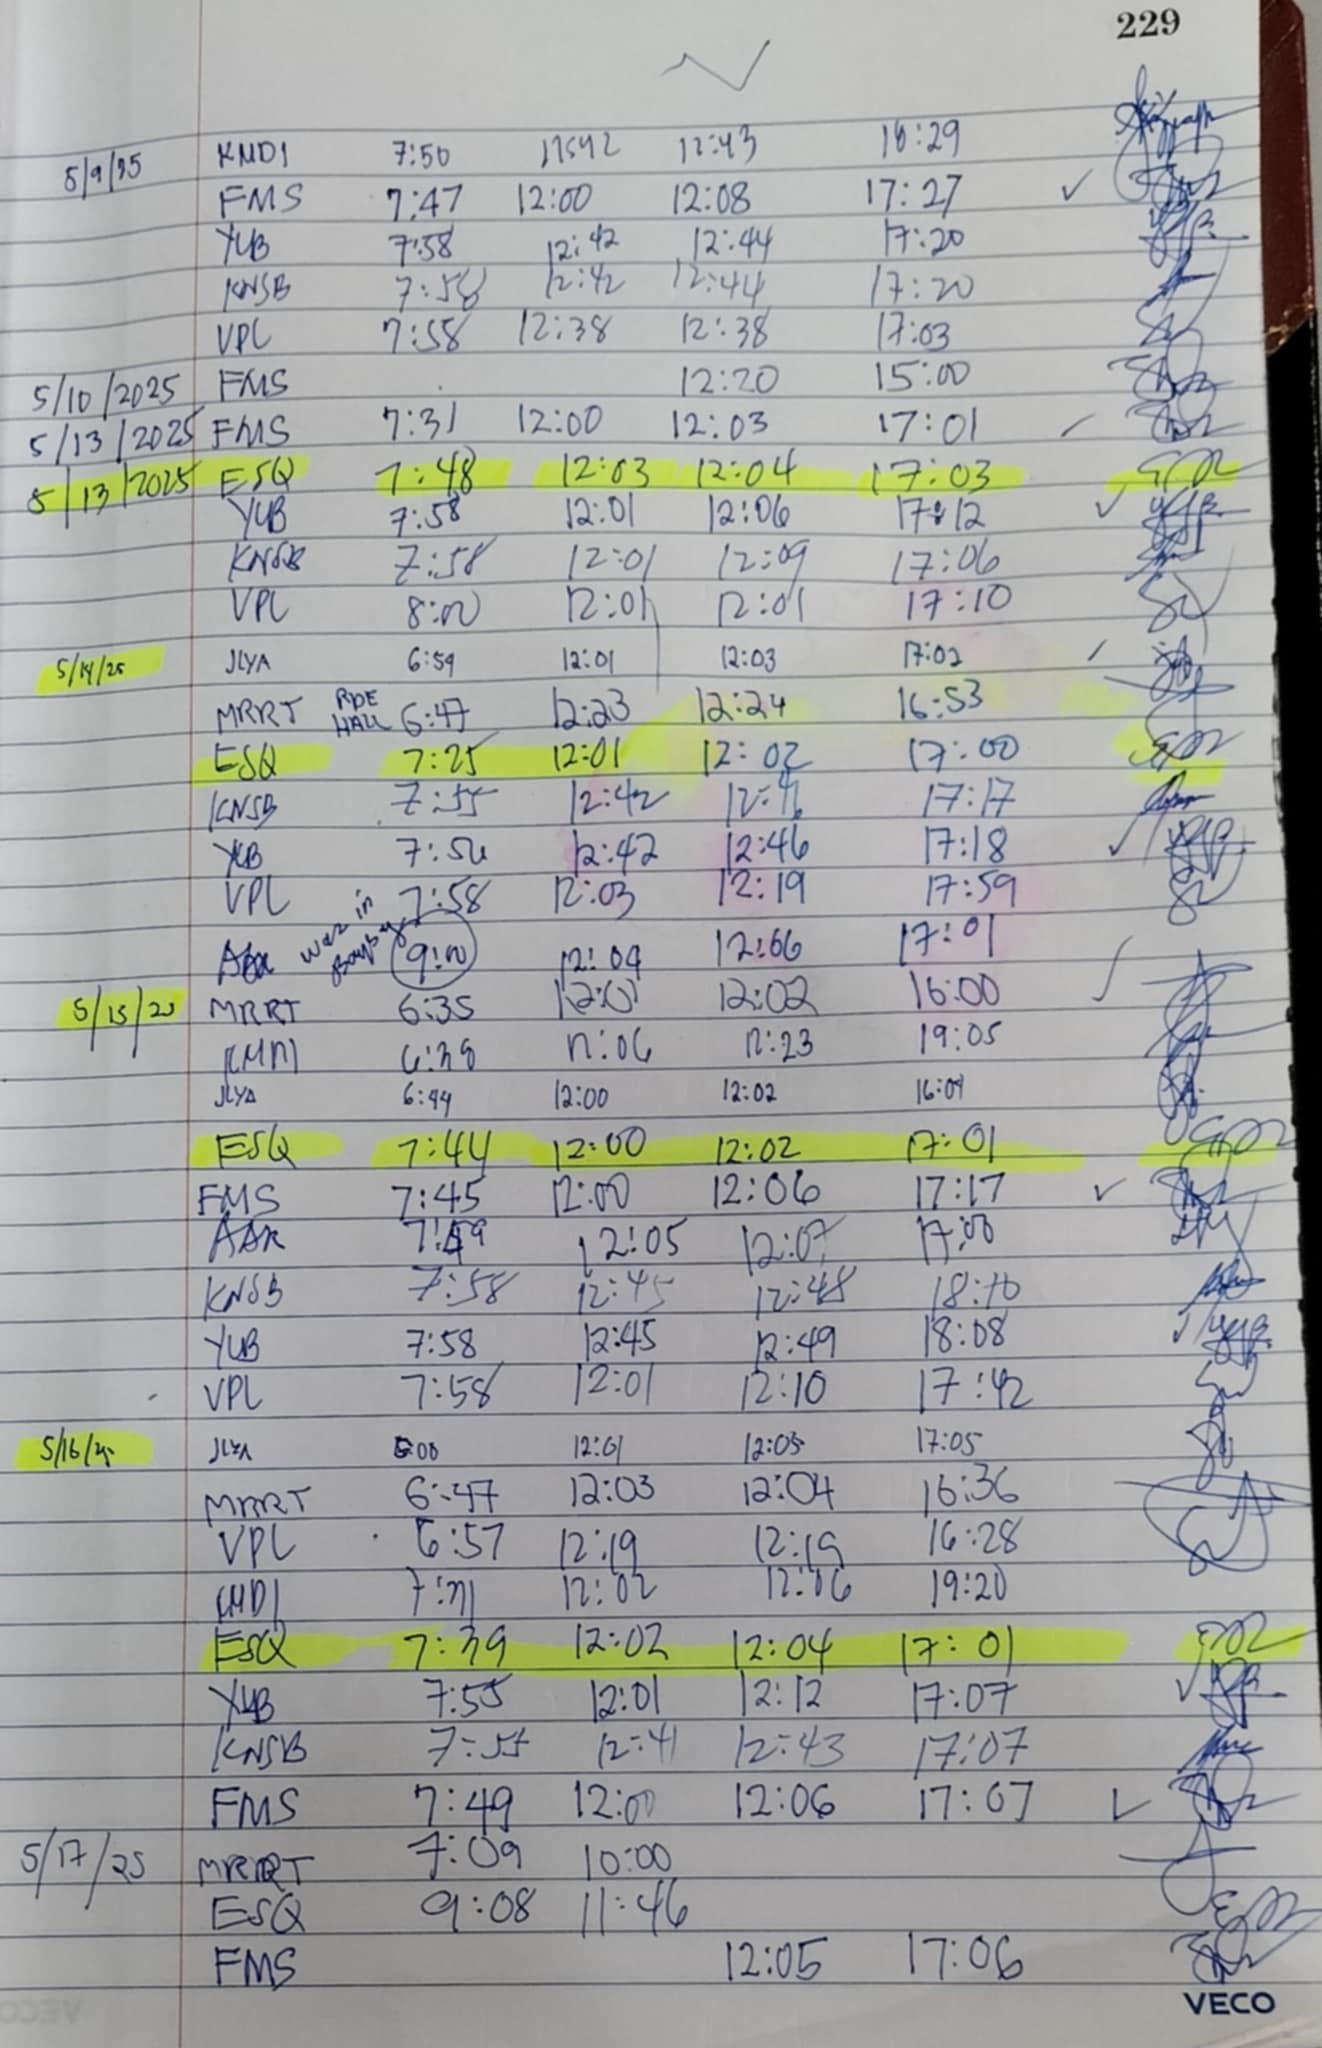 229
5/9/25 KMDI 7:50 12:43 16:29
FMS 7:47 12:00 12:08 17:27
YUB 7:58 12:42 12:44 17:20
KNSB 7:58 12:42 12:44 17:20
VPL 7:58 12:38 12:38 17:03
5/10/2025 FMS 12:20 15:00
5/13/2025 FMS 7:31 12:00 12:03 17:01
5/13/2025 ESQ 7:48 12:03 12:04 17:03
YUB 7:58 12:01 12:06 17:12
KNSB 7:58 12:01 12:09 17:06
VPL 8:00 12:01 12:01 17:10
5/14/25 JLYA 6:59 12:01 12:03 17:02
MRRT HALL 6:47 12:23 12:24 16:53
ESQ 7:25 12:01 12:02 17:00
KNSB 7:55 12:42 17:17
YUB 12:42 12:46 17:18
VPL 7:58 12:03 12:19 17:59
was in 9:00 12:04 12:06 17:01
5/15/25 MRRT 6:35 12:01 12:02 16:00
KMDI 12:06 12:23 19:05
JLYA 6:44 12:00 12:02 16:04
ESQ 7:44 12:00 12:02 17:01
FMS 7:45 12:00 12:06 17:17
AAR 12:05 12:07 17:00
KNSB 7:58 12:45 12:48 18:10
YUB 7:58 12:45 12:49 18:08
VPL 7:58 12:01 12:10 17:42
5/16/25 JLYA 12:01 12:05 17:05
MRRT 6:47 12:03 12:04 16:36
VPL 6:57 12:19 12:19 16:28
KMDI 12:02 12:06 19:20
ESQ 7:39 12:02 12:04 17:01
YUB 7:55 12:01 12:12 17:07
KNSB 7:55 12:41 12:43 17:07
FMS 7:49 12:00 12:06 17:07
5/17/25 MRRT 7:09 10:00
ESQ 9:08 11:46
FMS 12:05 17:06
VECO